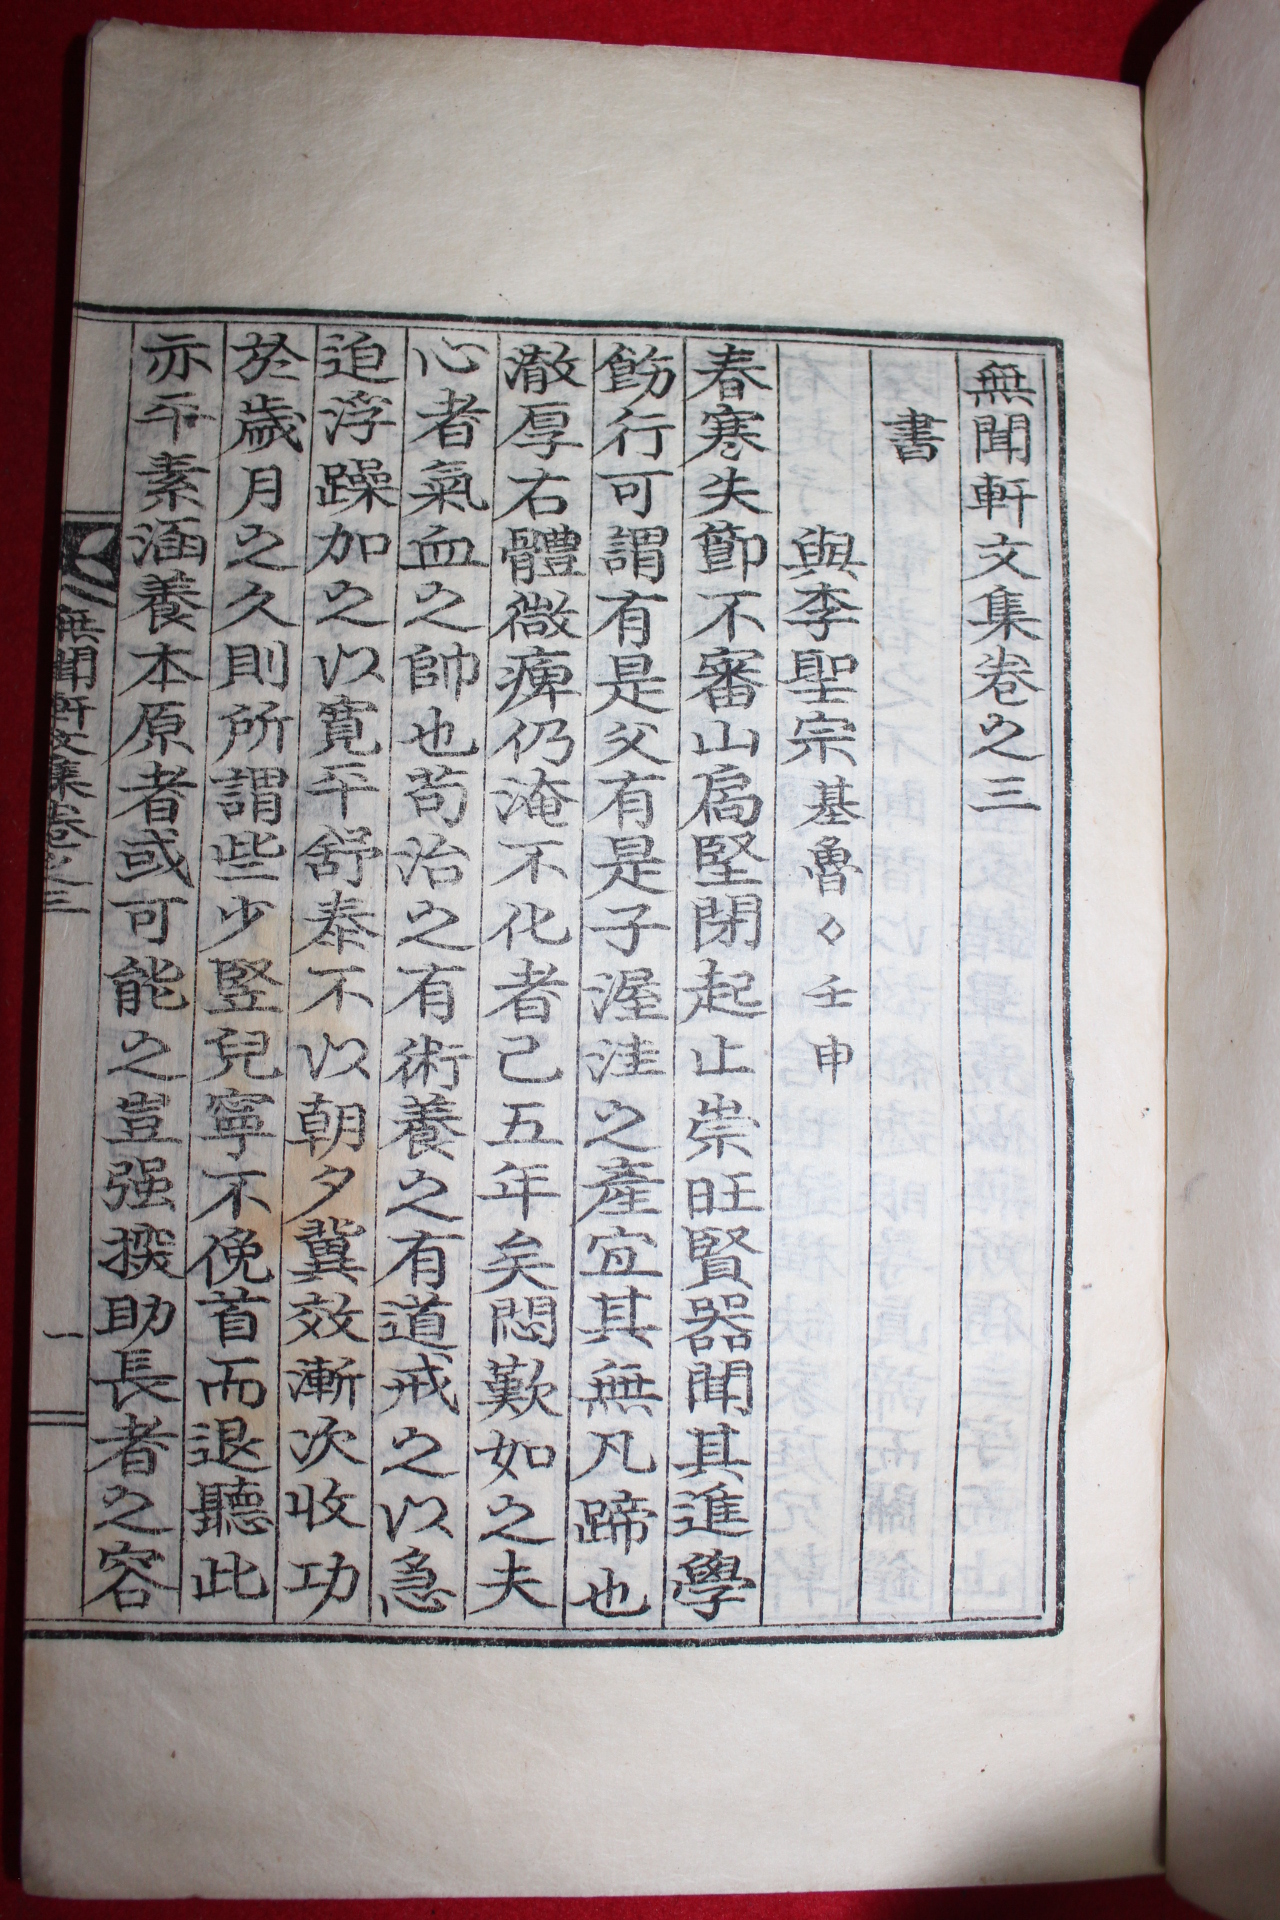 無聞軒文集卷之三
書
與李聖宗基魯〇壬申
春寒失節不審山扃堅閉起止崇旺賢器聞其進學
飭行可謂有是父有是子渥洼之產宜其無凡蹄也
澈厚右體微痺仍淹不化者已五年矣悶歎如之夫
心者氣血之帥也苟治之有術養之有道戒之以急
迫浮躁加之以寬平舒泰不以朝夕冀效漸次收功
於歲月之久則所謂些少竪兒寧不俛首而退聽此
亦平素涵養本原者或可能之豈强揠助長者之容
無聞軒文集卷之三
一